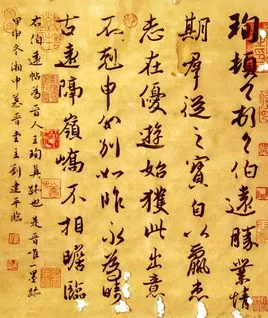 珣頓首頓首伯遠勝業情
期群從之寶自以羸患
志在優遊始獲此出意
不剋申分別如昨永為疇
古遠隔嶺嶠不相瞻臨
右伯遠帖為晉人王珣真跡也是晉唯墨跡
甲申冬湘中慕晉堂主劉建平臨